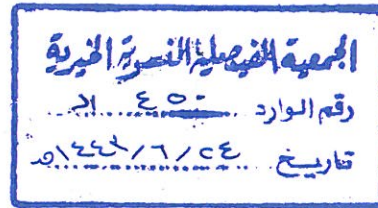 الجمعية الفيصلية النسوية الخيرية
رقم الوارد
تاريخ ١٤٤٣/٦/٢٤هـ